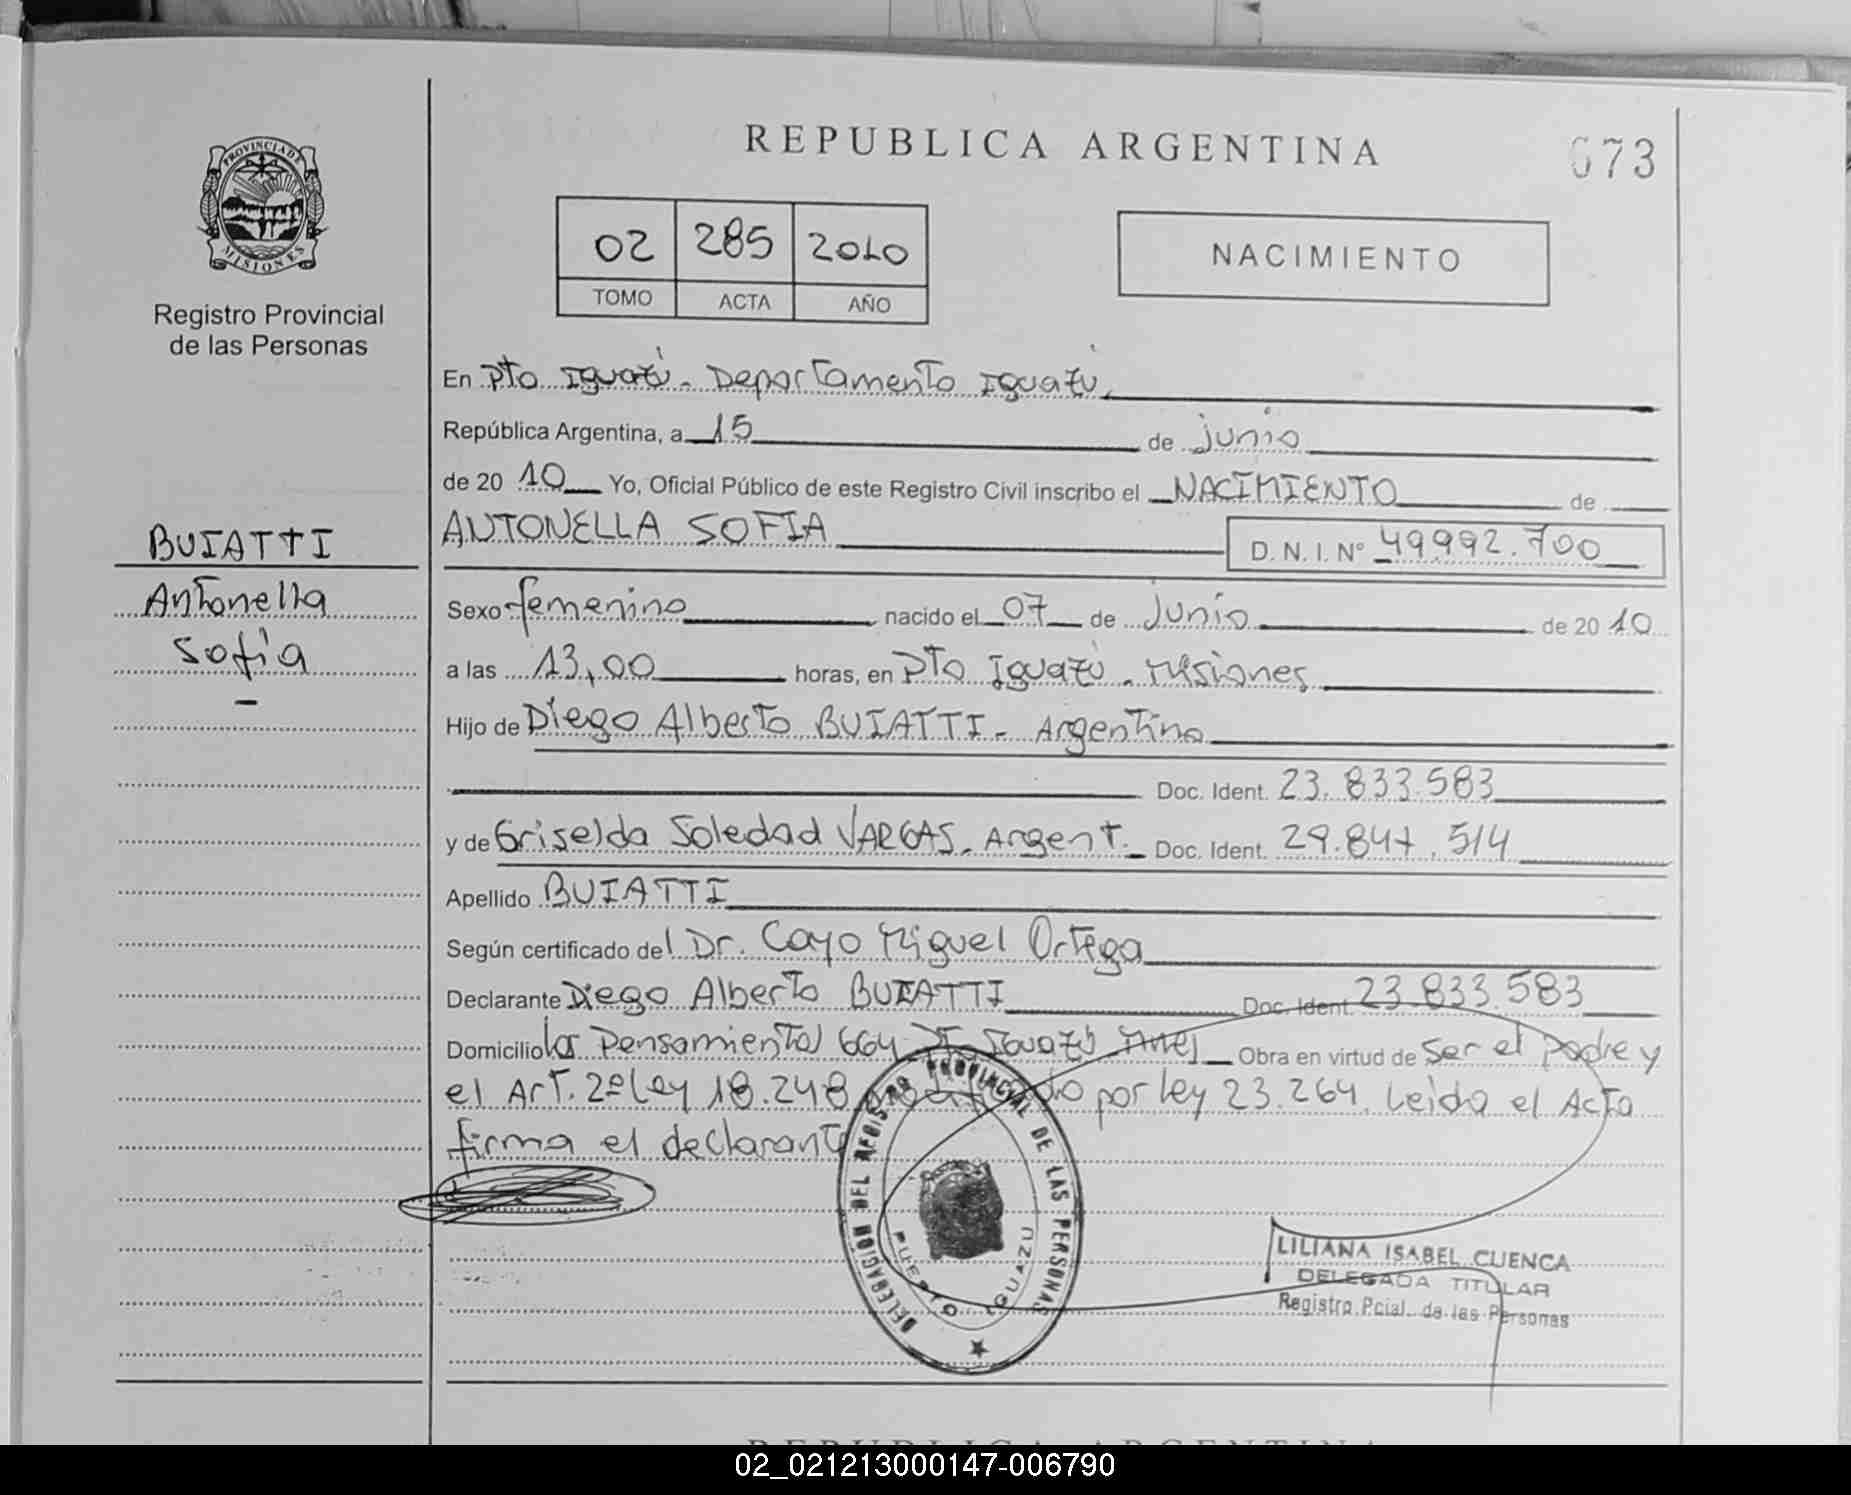 REPUBLICA ARGENTINA
673
PROVINCIA DE MISIONES
Registro Provincial
de las Personas
02 285 2010
TOMO ACTA AÑO
NACIMIENTO
En Pto Iguazú - Departamento Iguazú,
República Argentina, a 15 de junio
de 20 10 Yo, Oficial Público de este Registro Civil inscribo el NACIMIENTO de
BUIATTI
Antonella
Sofía
-
ANTONELLA SOFIA D.N.I. Nº 49.992.700
Sexo femenino nacido el 07 de Junio de 20 10
a las 13,00 horas, en Pto Iguazú - Misiones
Hijo de Diego Alberto BUIATTI - Argentino
Doc. Ident. 23.833.583
y de Griselda Soledad VARGAS - Argent. Doc. Ident. 29.847.514
Apellido BUIATTI
Según certificado del Dr. Cayo Miguel Ortega
Declarante Diego Alberto BUIATTI Doc. Ident. 23.833.583
Domicilio Los Pensamientos 664 Pto Iguazú Mnes Obra en virtud de Ser el Padre y
el Art. 2º Ley 18.248 modificado por Ley 23.264. Leída el Acta
firma el declarante
DELEGACION DEL REGISTRO PROVINCIAL DE LAS PERSONAS
PUERTO IGUAZU
LILIANA ISABEL CUENCA
DELEGADA TITULAR
Registro Pcial. de las Personas
REPUBLICA ARGENTINA
02_021213000147-006790